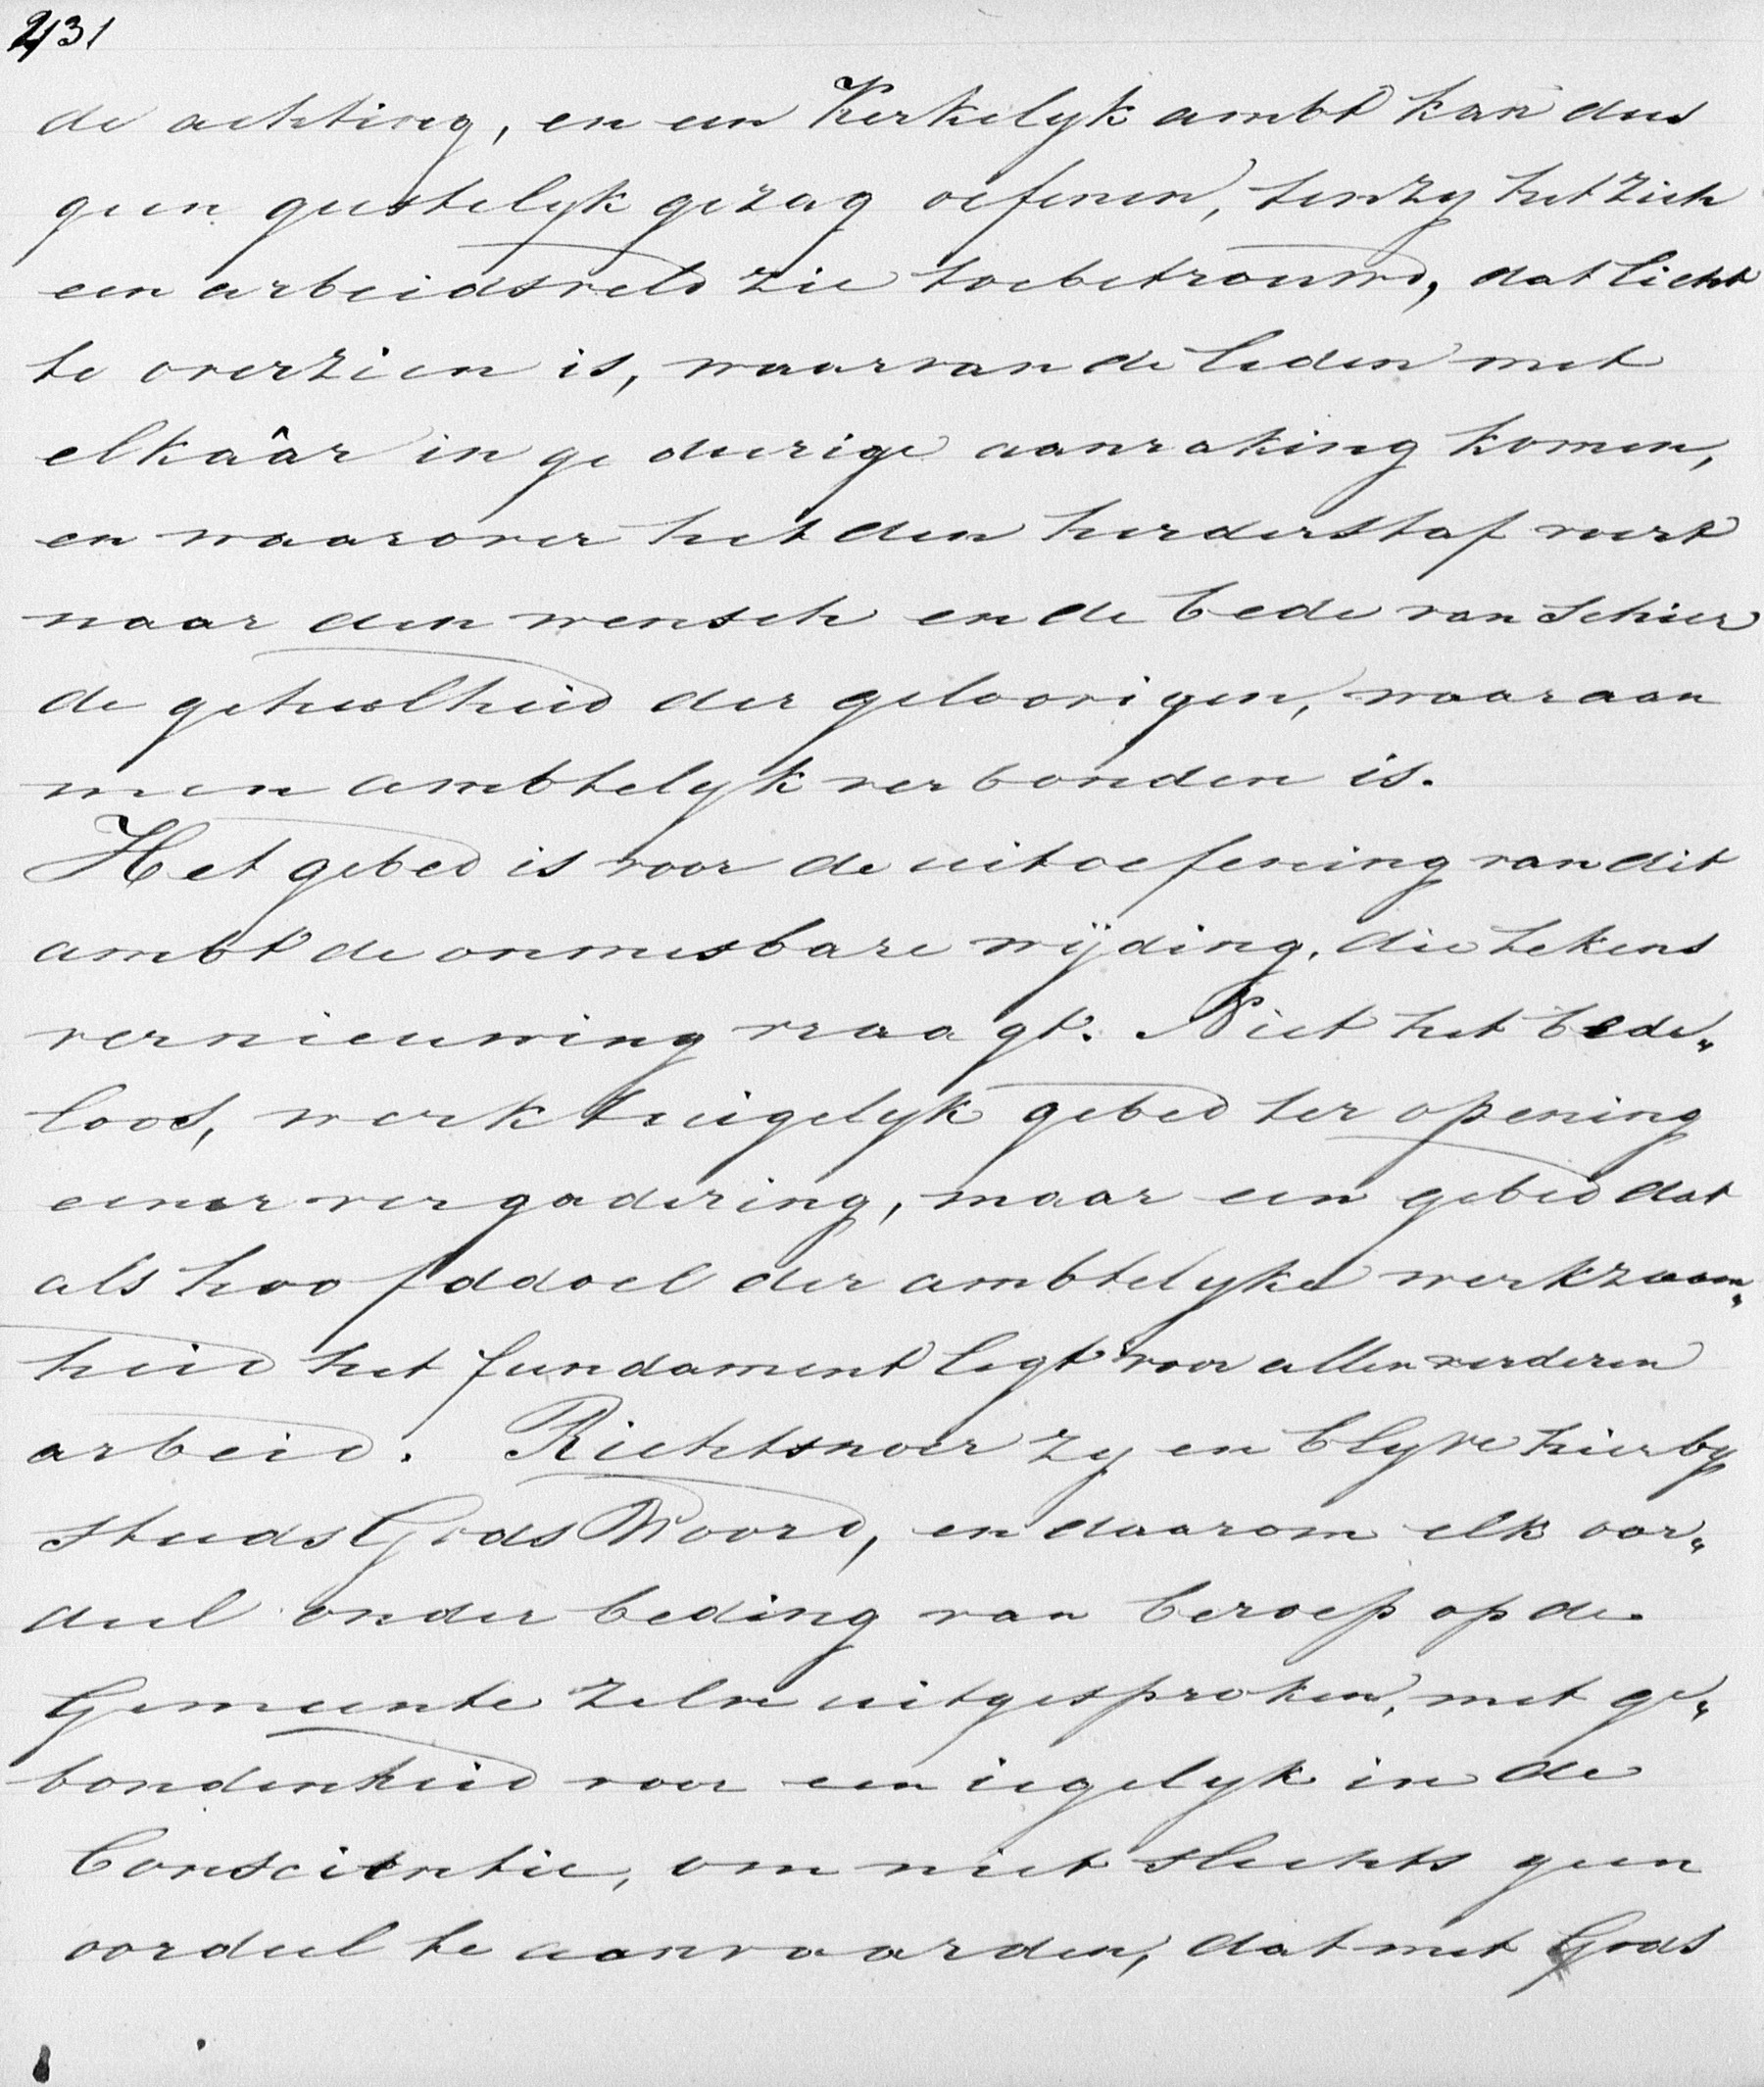 231
de achting, en een Kerkelyk ambt kan dus
geen geestelyk gezag oefenen, tenzy het zich
een arbeidsveld zie toebetrouwd, dat licht
te overzien is, waarvan de leden met
elkaâr in gedurige aanraking komen,
en waarover het den herderstaf voert
naar den wensch en de bede van schier
de geheelheid der geloovigen, waaraan
men ambtelyk verbonden is.
Het gebed is voor de uitoefening van dit
ambt de onmisbare wijding, die telkens
vernieuwing vraagt. Niet het bede„
loos, werktuigelyk gebed ter opening
eener vergadering, maar een gebed dat
als hoofddoel der ambtelyke werkzaam„
heid het fundament legt voor allen verderen
arbeid. Richtsnoer zy en blyve hierby
steeds Gods Woord, en daarom elk oor„
deel onder beding van beroep op de
Gemeente zelve uitgesproken, met ge„
bondenheid voor een iegelyk in de
Consciëntie, om niet slechts geen
oordeel te aanvaarden, dat met Gods